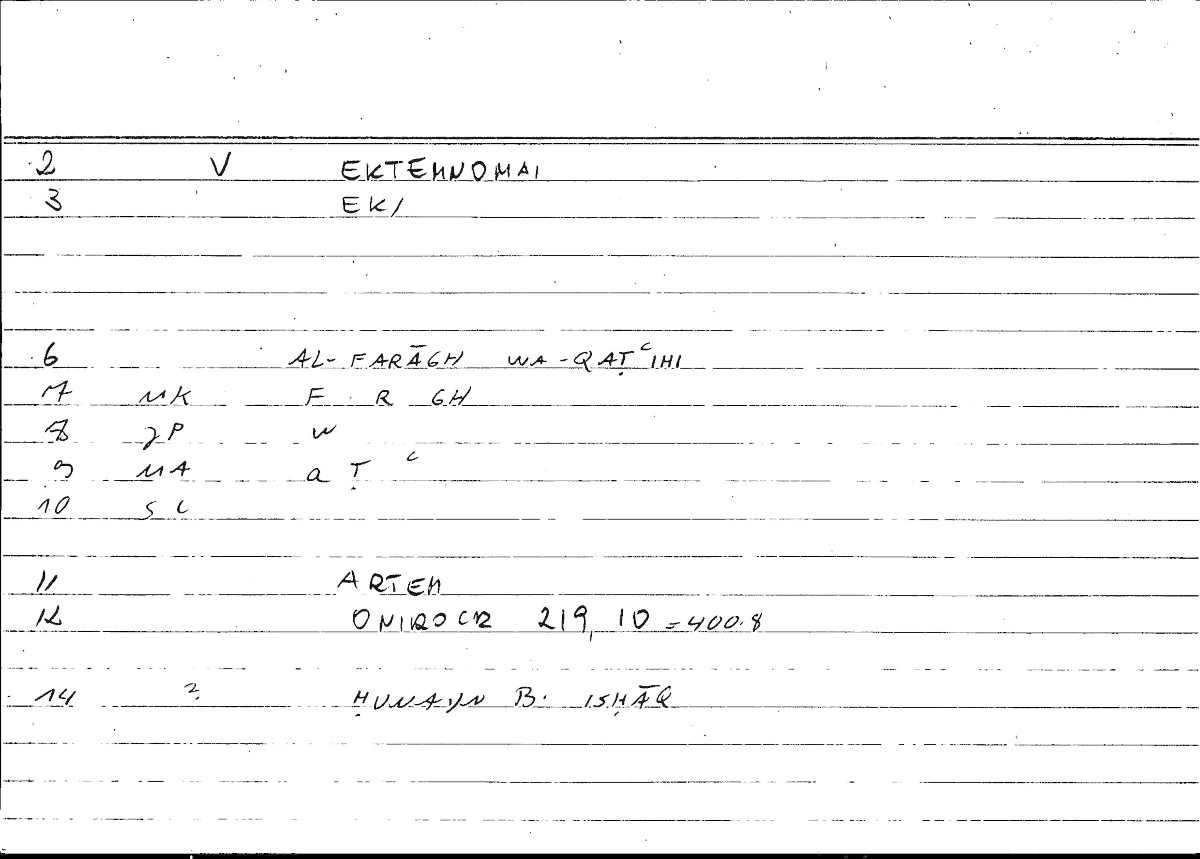 2 V EKTEMNOMAI
3 EK/
6 AL-FARĀGH WA-QAṬʿIHI
7 MK F R GH
8 JP W
9 MA Q Ṭ ʿ
10 SC
11 ARTEM
12 ONIROCR 219, 10 = 400.8
14 2 ḤUNAYN B. ISḤĀQ